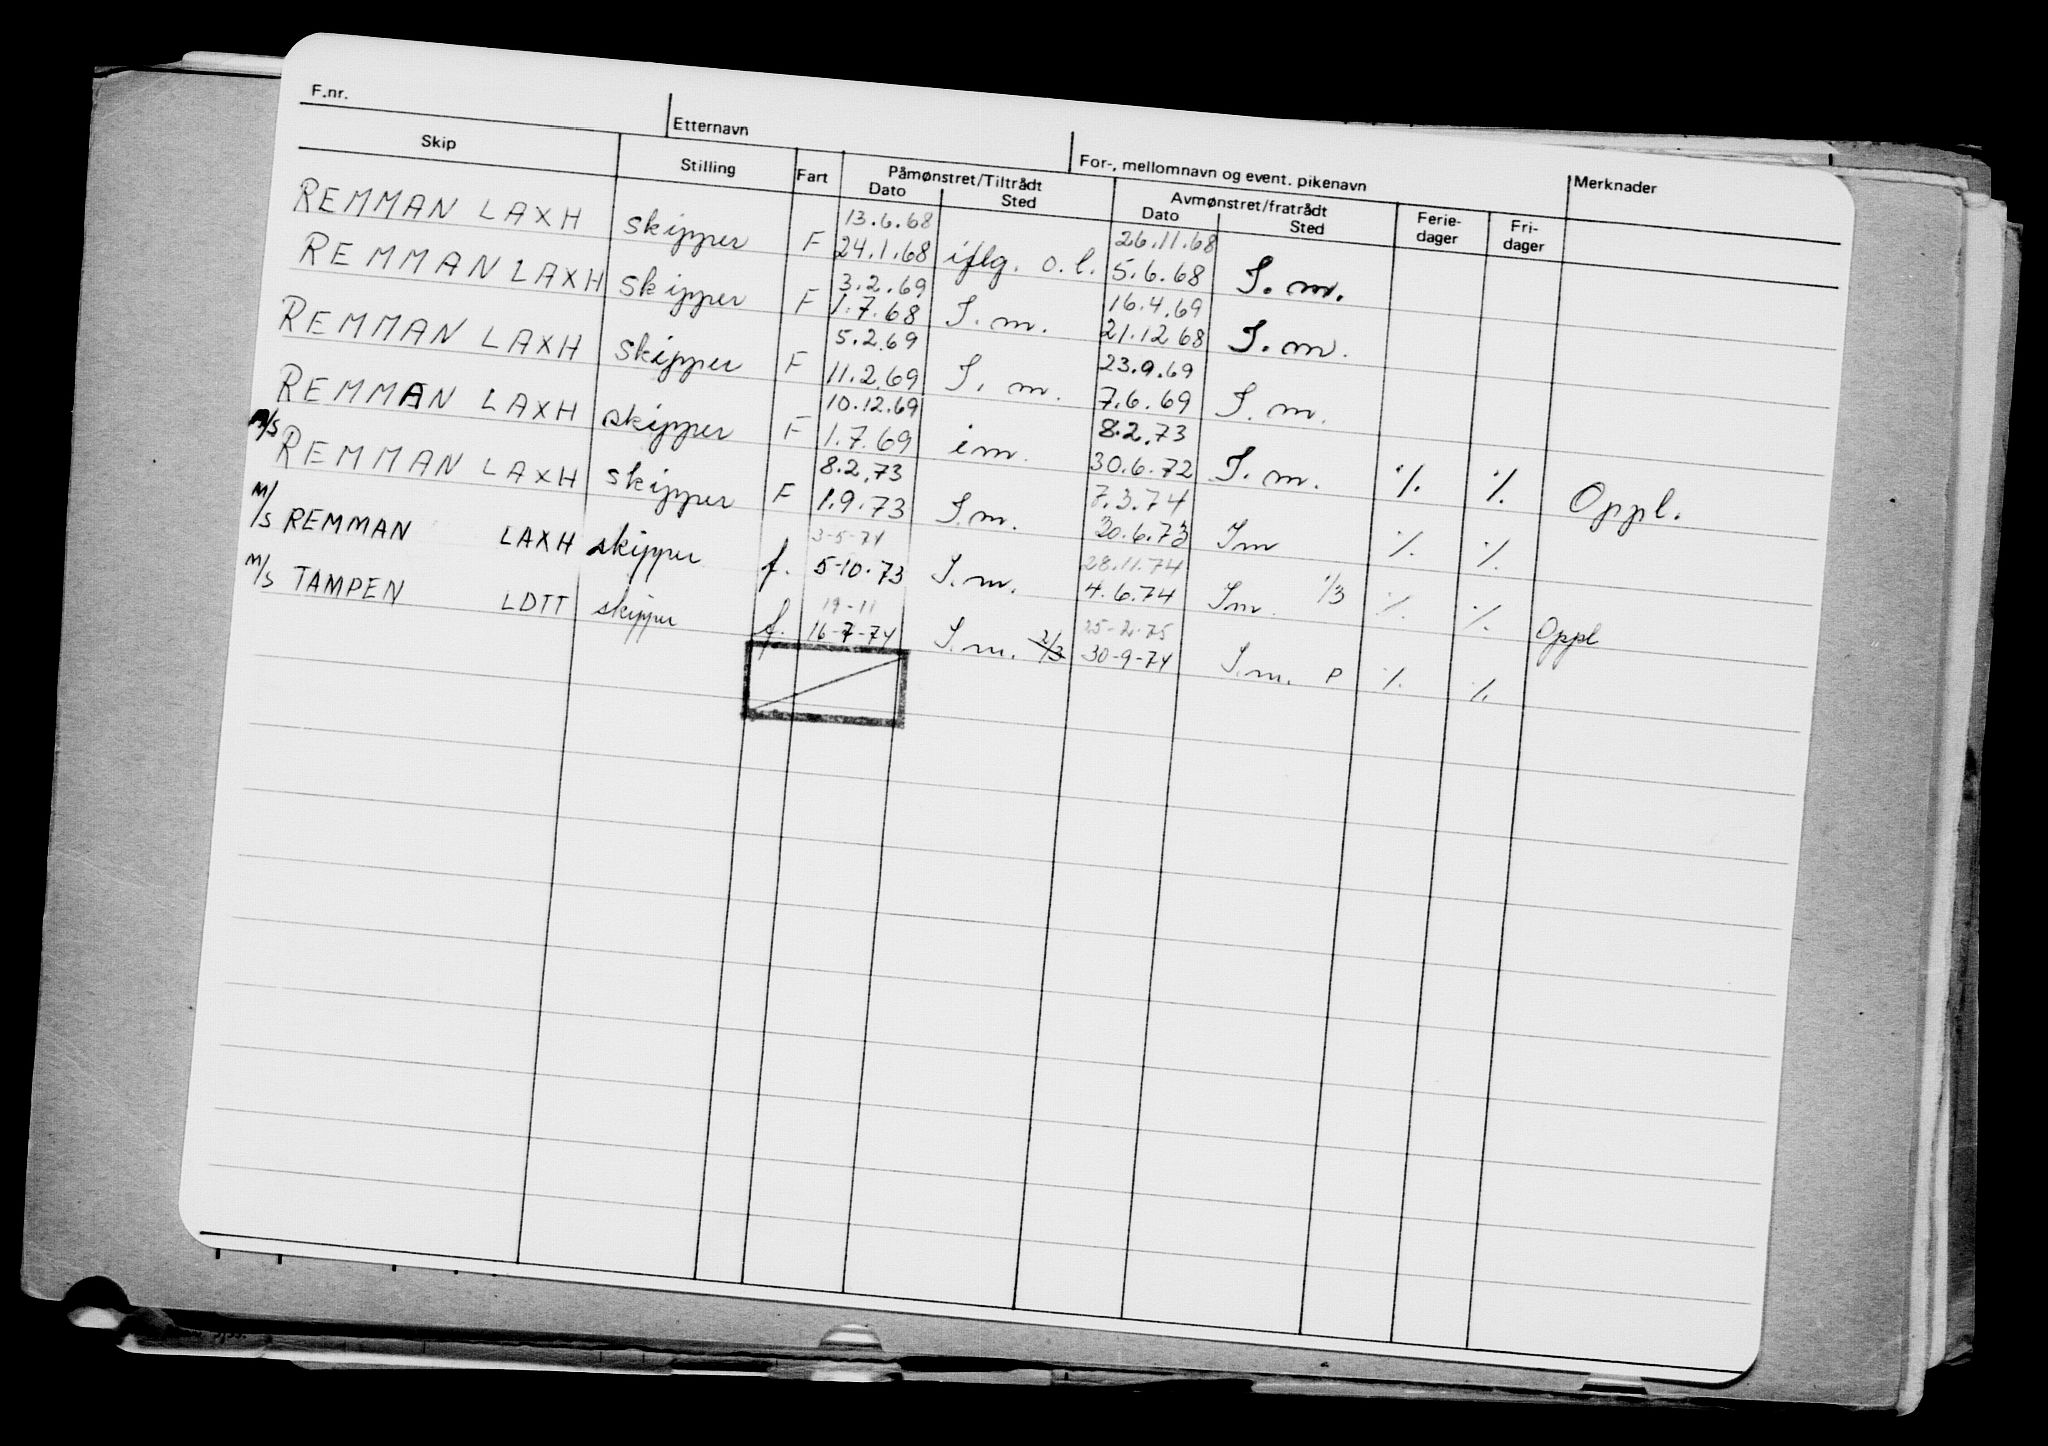 F.nr.
Etternavn
For-, mellomnavn og event. pikenavn
Skip Stilling Fart Påmønstret/Tiltrådt Dato Sted Avmønstret/fratrådt Dato Sted Ferie-dager Fri-dager Merknader
13.6.68 26.11.68
REMMAN LAXH skipper F 24.1.68 iflg. o.l. 5.6.68 I. m.
3.2.69 16.4.69
REMMAN LAXH skipper F 1.7.68 I. m. 21.12 68 I. m.
5.2.69 23.9.69
REMMAN LAXH skipper F 11.2.69 I. m. 7.6.69 I. m.
10.12.69 8.2.73
REMMAN LAXH skipper F 1.7.69 i m. 30.6.72 I. m. % % Oppl.
8.2.73 7.3.74
M/S REMMAN LAXH skipper F 1.9.73 I.m. 30.6.73 Im % %
3-5-74 28.11.74
M/S REMMAN LAXH skipper f. 5-10.73 I.m. 4.6.74 Im. 1/3 % % Oppl
19-11 25-2-75
M/S TAMPEN LDTT skipper f. 16-7-74 I.m. 2/3 30-9-74 I.m. P % %